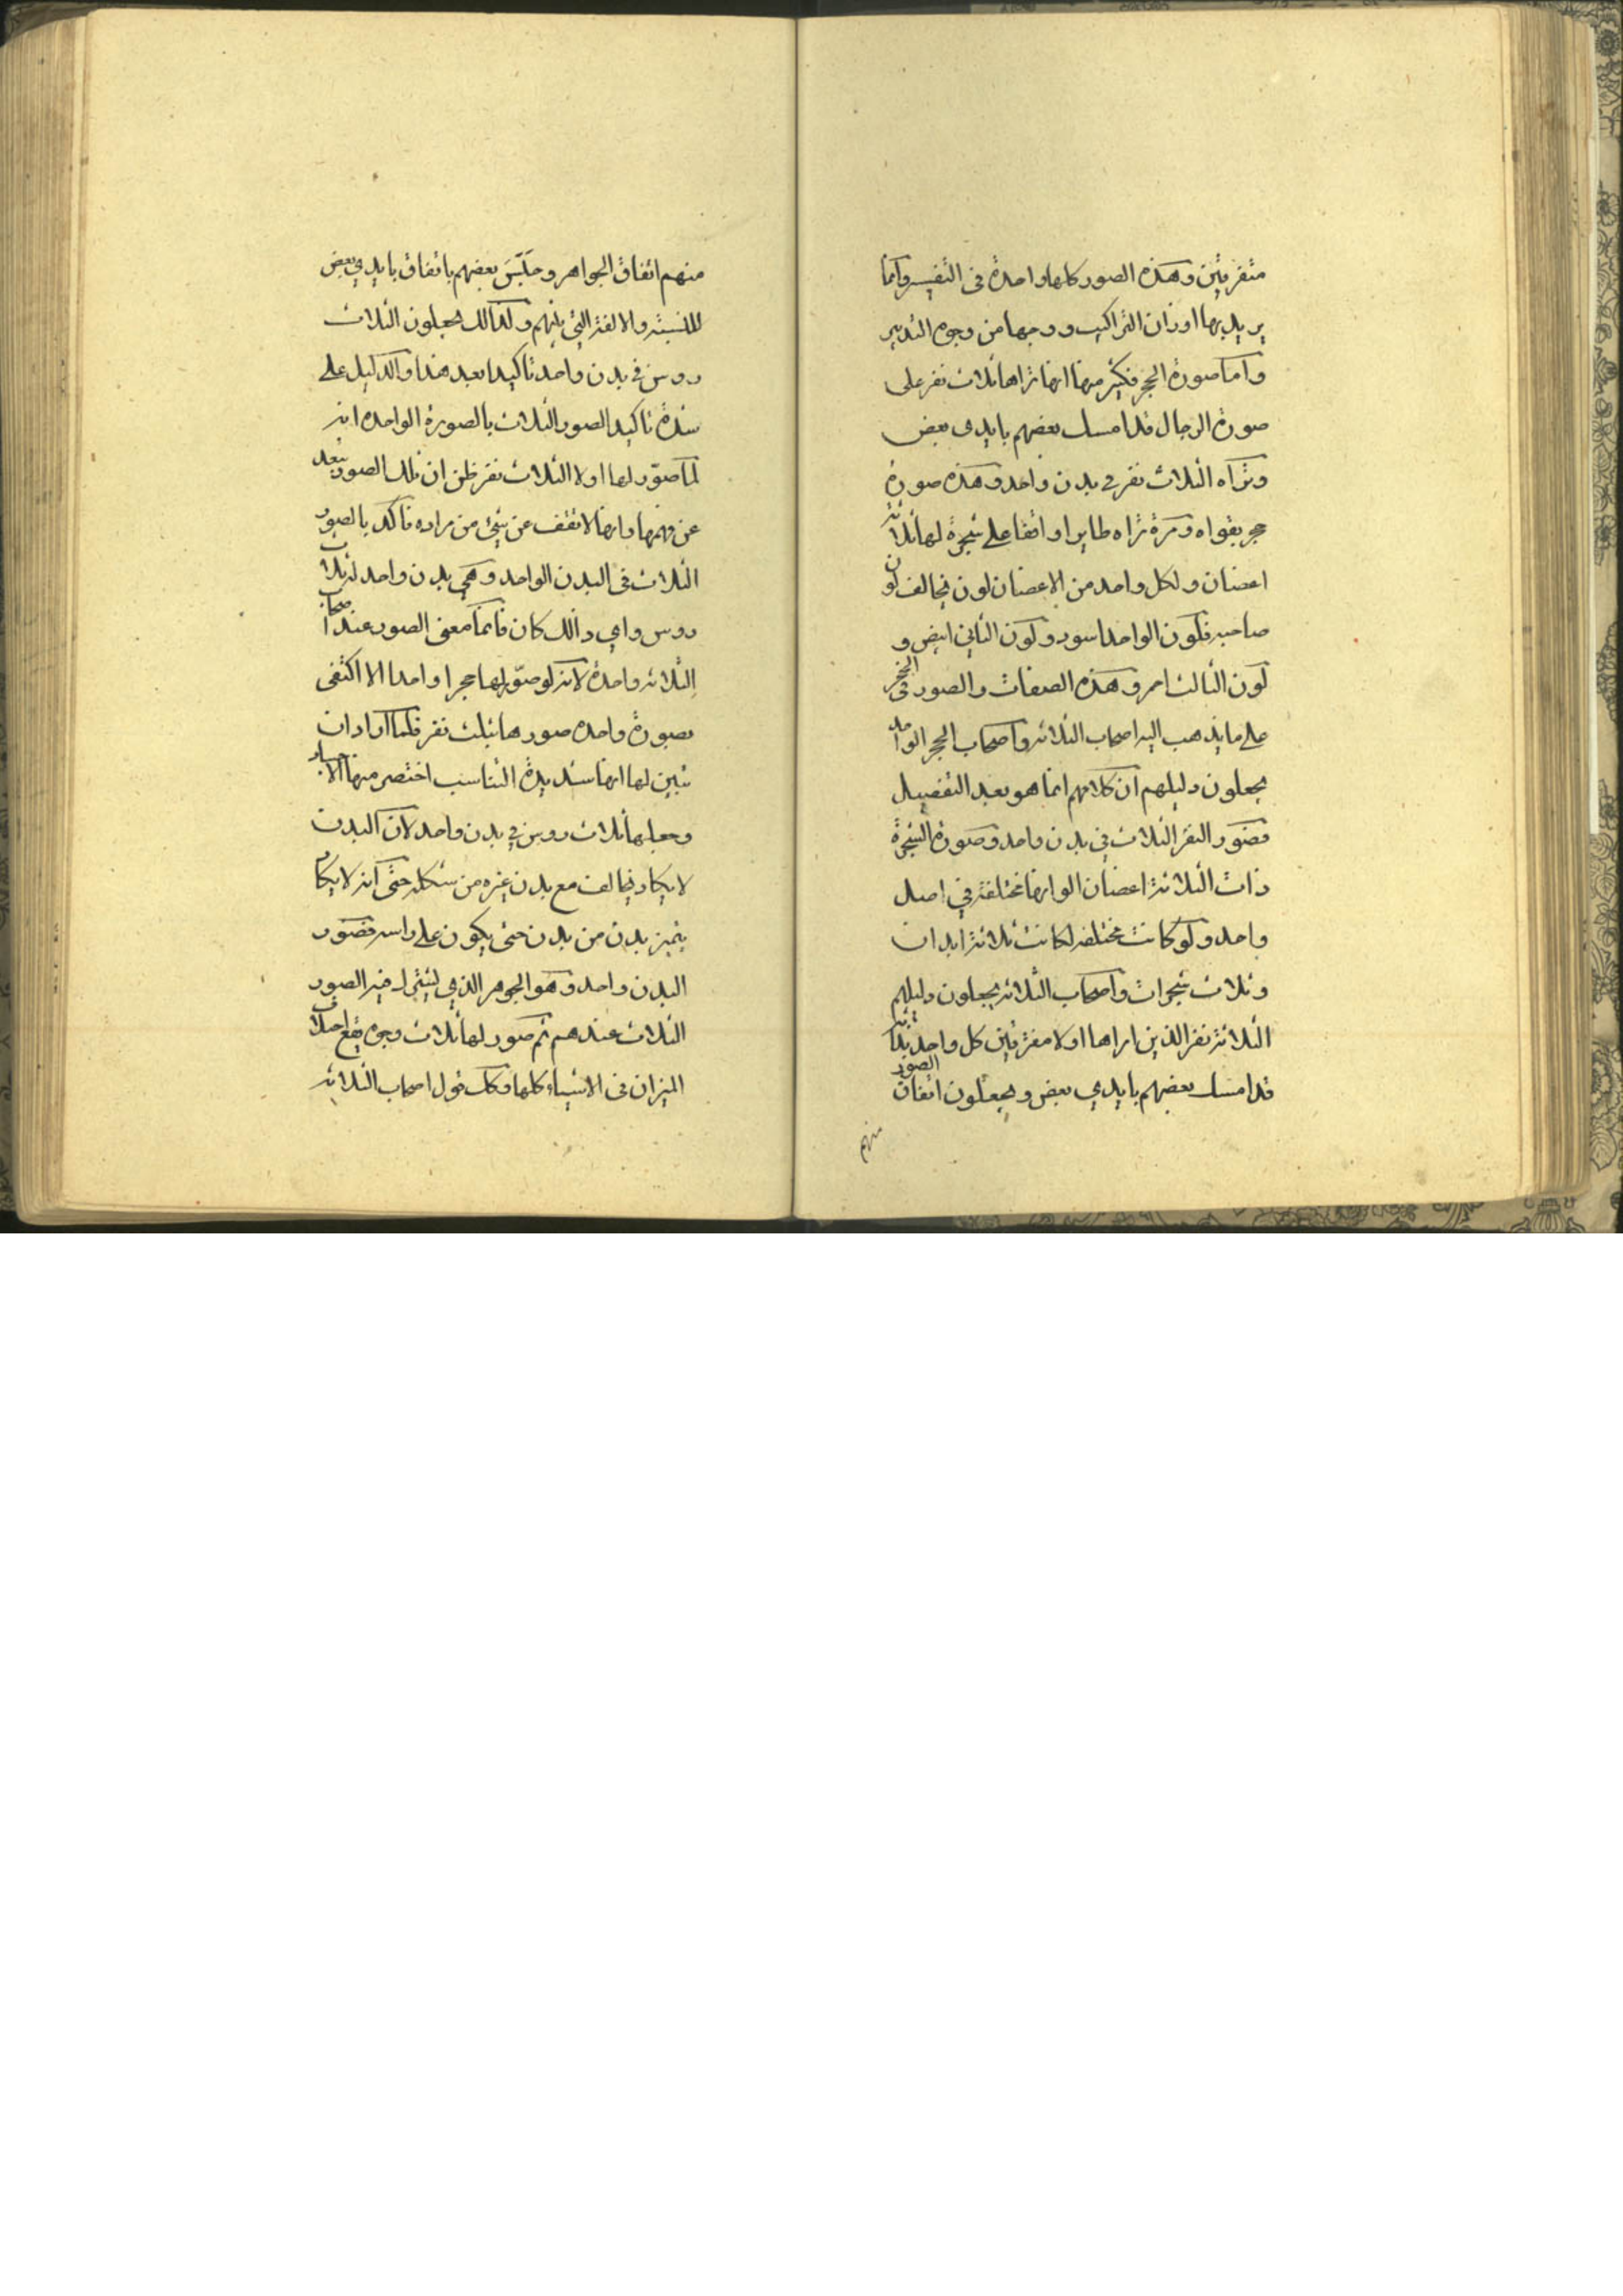 متفرقين وهذه الصور كلها واحدة فى التفسير وانما
يريد بها اوزان التراكيب ووجها من وجوه التدبير
واما صورة الحجر فكثير منها انها تراها ثلاث نفر على
صورة الرجال قد امسك بعضهم بايدى بعض
وتراه الثلاث نفر فى بدن واحد وهذه صورة
حجر بقواه ومرة تراه طايرا واقفا على شجرة لها ثلاثة
اغصان ولكل واحد من الاغصان لون يخالف لون
صاحبه فلون الواحد اسود ولون الثانى ابيض و
لون الثالث احمر وهذه الصفات والصور فى الحجر
على ما يذهب اليه اصحاب الثلاثة واصحاب الحجر الواحد
يجعلون دليلهم ان كلامهم انما هو بعد التفصيل
فصور النفر الثلاث فى بدن واحد وصورة الشجرة
ذات الثلاثة اغصان الوانها مختلفة فى اصل
واحد ولو كانت مختلفه لكانت ثلاثة ابدان
وثلاث شجرات واصحاب الثلاثة يجعلون دليلهم
الثلاثة نفر الذين اراها اولا مفترقين كل واحد بذاته
قد امسك بعضهم بايدي بعض ويجعلون اتفاق الصور
منهم
منهم اتفاق الجواهر و بعضهم باتفاق بايدي بعض
للنسبة والالفة التي بينهم ولذالك يجعلون الثلاث
روس في بدن واحد تاكيدا بعد هذا والدليل على
شدة تاكيد الصور الثلاث بالصورة الواحده انه
لما صوّر لها اولا الثلاث نفر ظن ان تلك الصور تبعد
عن فهمها وانها لا تقف عن شئ من مراده فاكد بالصور
الثلاث فى البدن الواحد وهي بدن واحد له ثلاث
روس واي ذالك كان فانما معنى الصور عند اصحاب
الثلاثة واحدة لانه لو صوّر لها حجرا واحدا الا اكتفى
بصورة واحده صورها بثلث نفر فلما اراد ان
تبين لها انها شديدة التناسب اختصر منها الاجساد
وجعلها ثلاث روس في بدن واحد لان البدن
لا يكاد يخالف مع بدن غيره من شكله حتى انه لا يكاد
يتميز بدن من بدن حتى يكون على راسه فصور
البدن واحد وهو الجوهر الذي ليشترك فيه الصور
الثلاث عندهم ثم صور لها ثلاث وجوه يقع اختلاف
الميزان فى الاشياء كلها وكل قول اصحاب الثلاثة